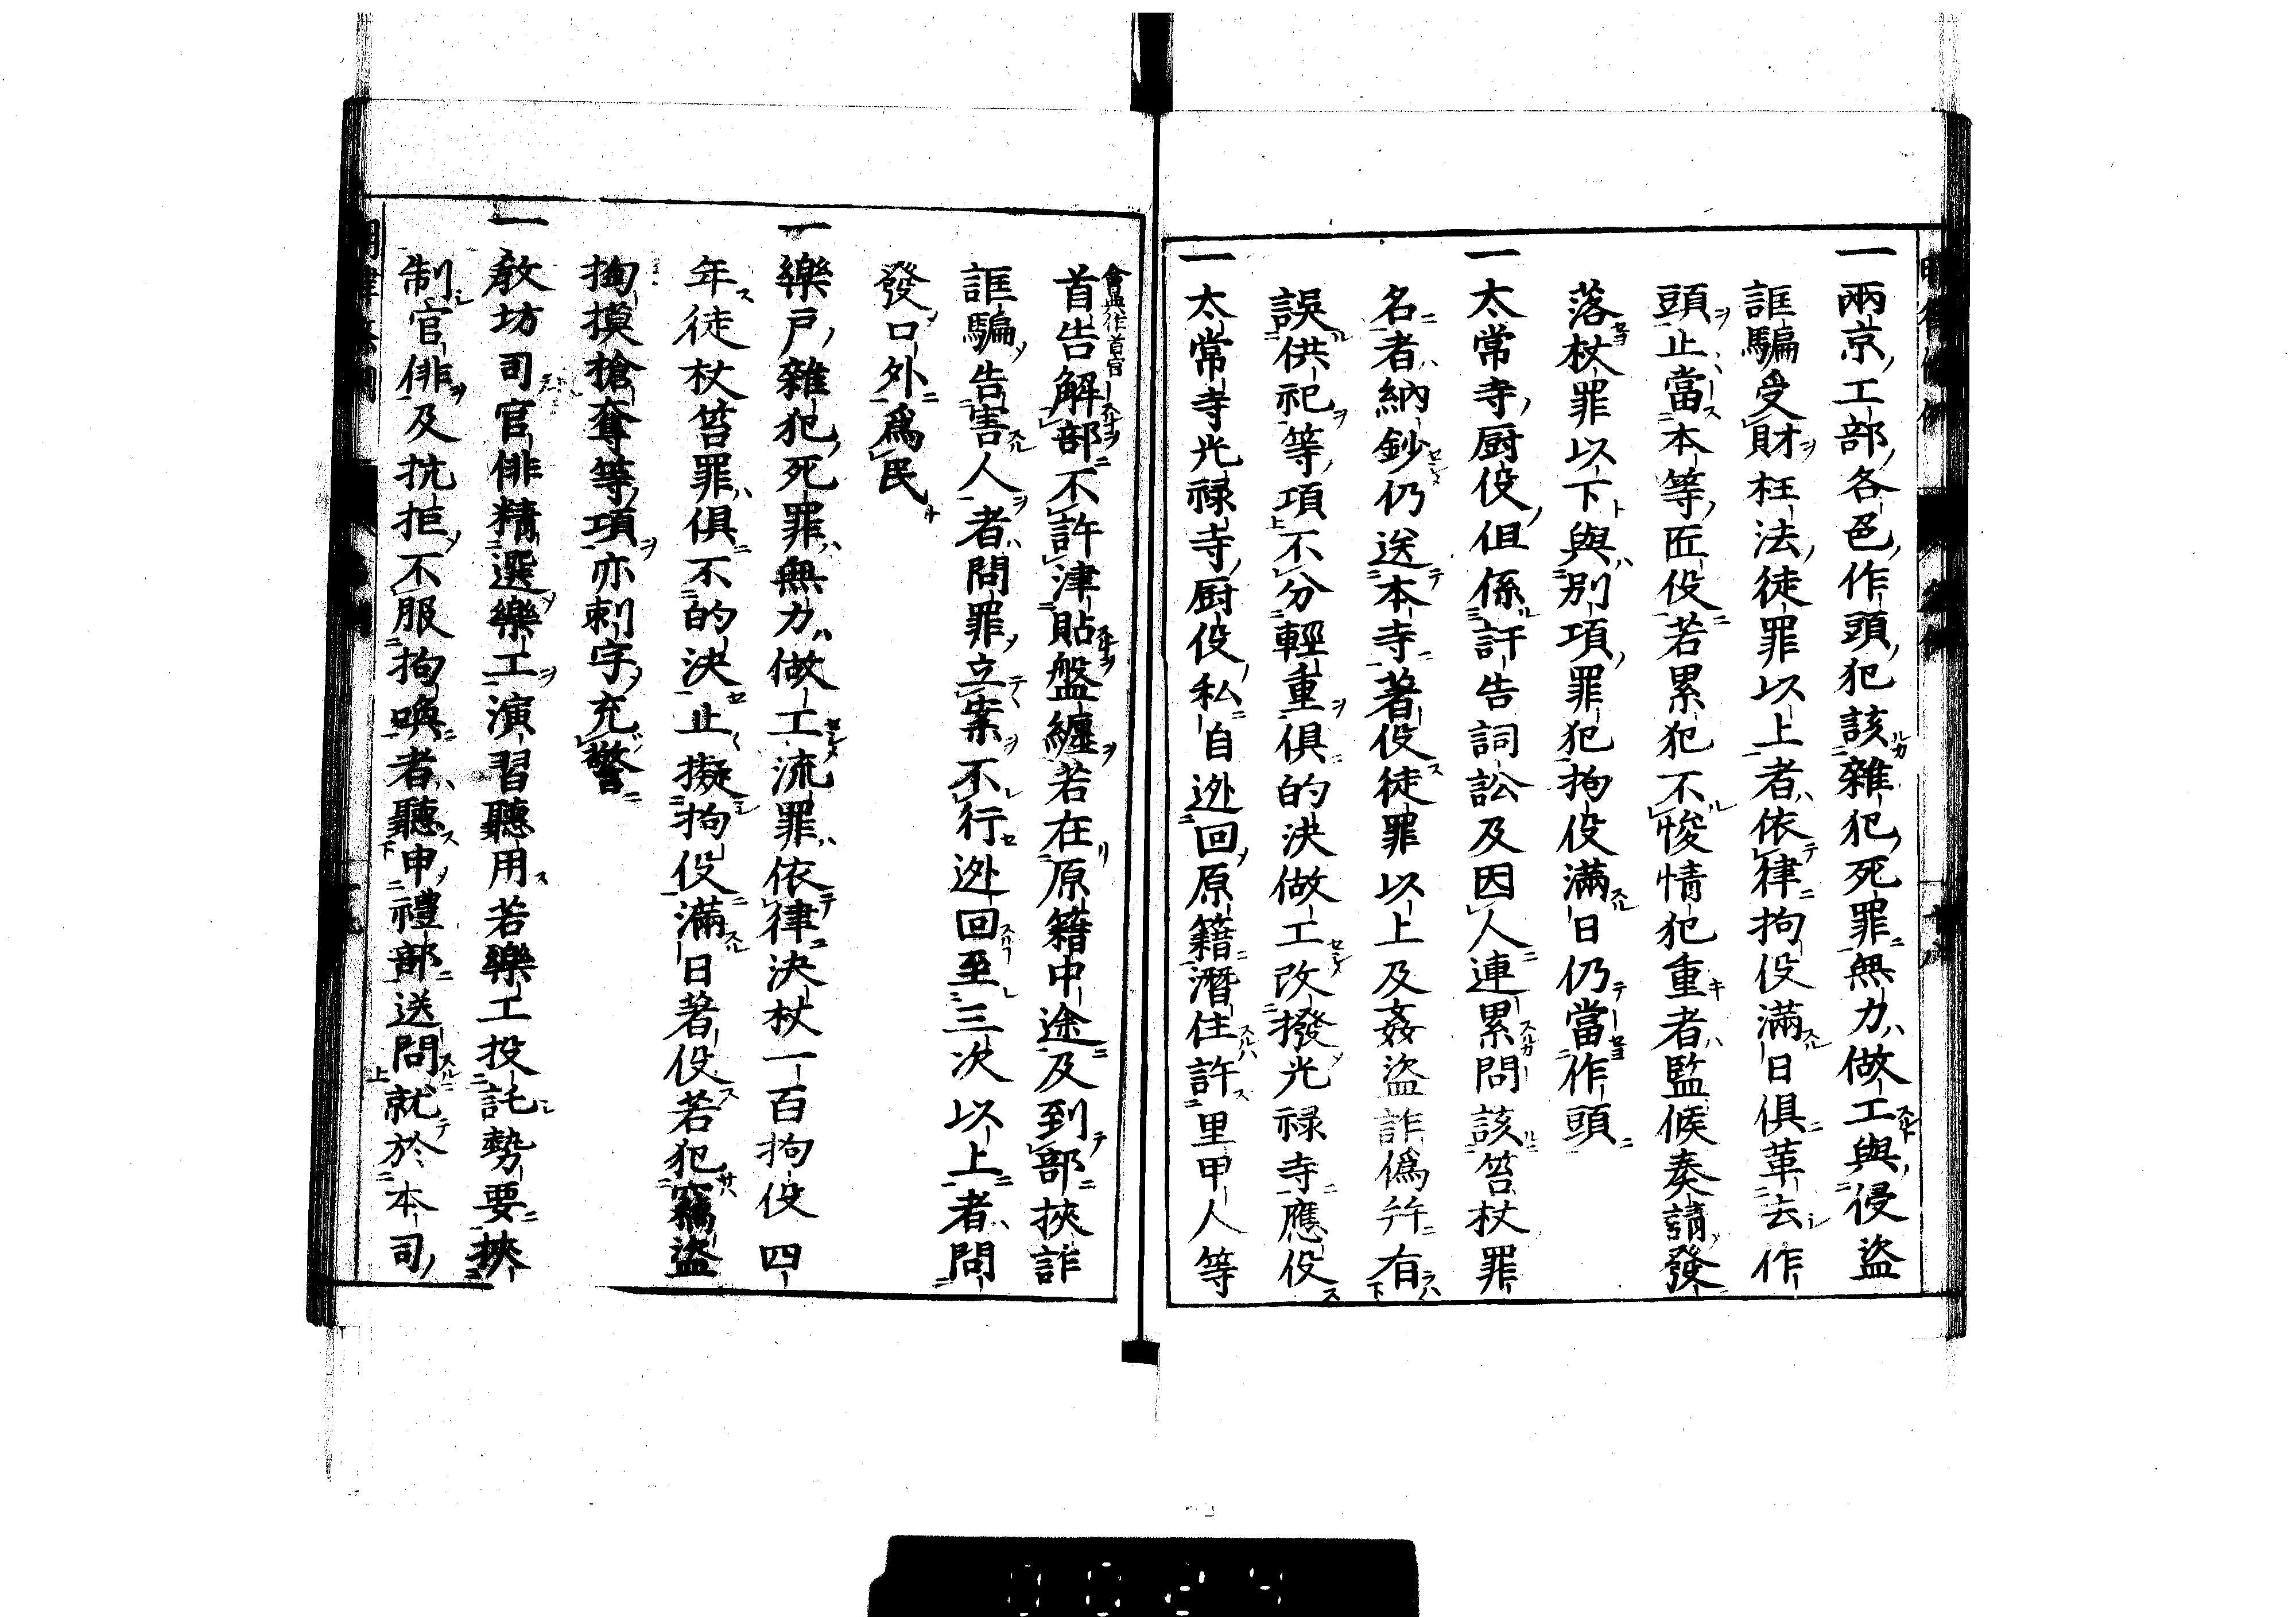 一兩京工部各色作頭犯該雜犯死罪無力做工與侵盜
誆騙受財枉法徒罪以上者依律拘役滿日俱革去作
頭止當本等匠役若累犯不悛情犯重者監候奏請發
落杖罪以下與別項罪犯拘役滿日仍當作頭
一太常寺厨役但係訐告詞訟及因人連累問該笞杖罪
名者納鈔仍送本寺著役徒罪以上及姦盜詐偽幷有
誤供祀等項不分輕重俱的決做工改撥光禄寺應役
一太常寺光禄寺厨役私自逃回原籍潛住許里甲人等
首告解部不許津貼盤纏若在原籍中途及到部挾詐
會典作首官
誆騙告害人者問罪立案不行逃回至三次以上者問
發口外爲民
一樂戶雜犯死罪無力做工流罪依律決杖一百拘役四
年徒杖笞罪俱不的決止擬拘役滿日著役若犯竊盜
掏摸搶奪等項亦刺字充警
一教坊司官俳精選樂工演習聽用若樂工投託勢要挾
制官俳及抗拒不服拘喚者聽申禮部送問就於本司